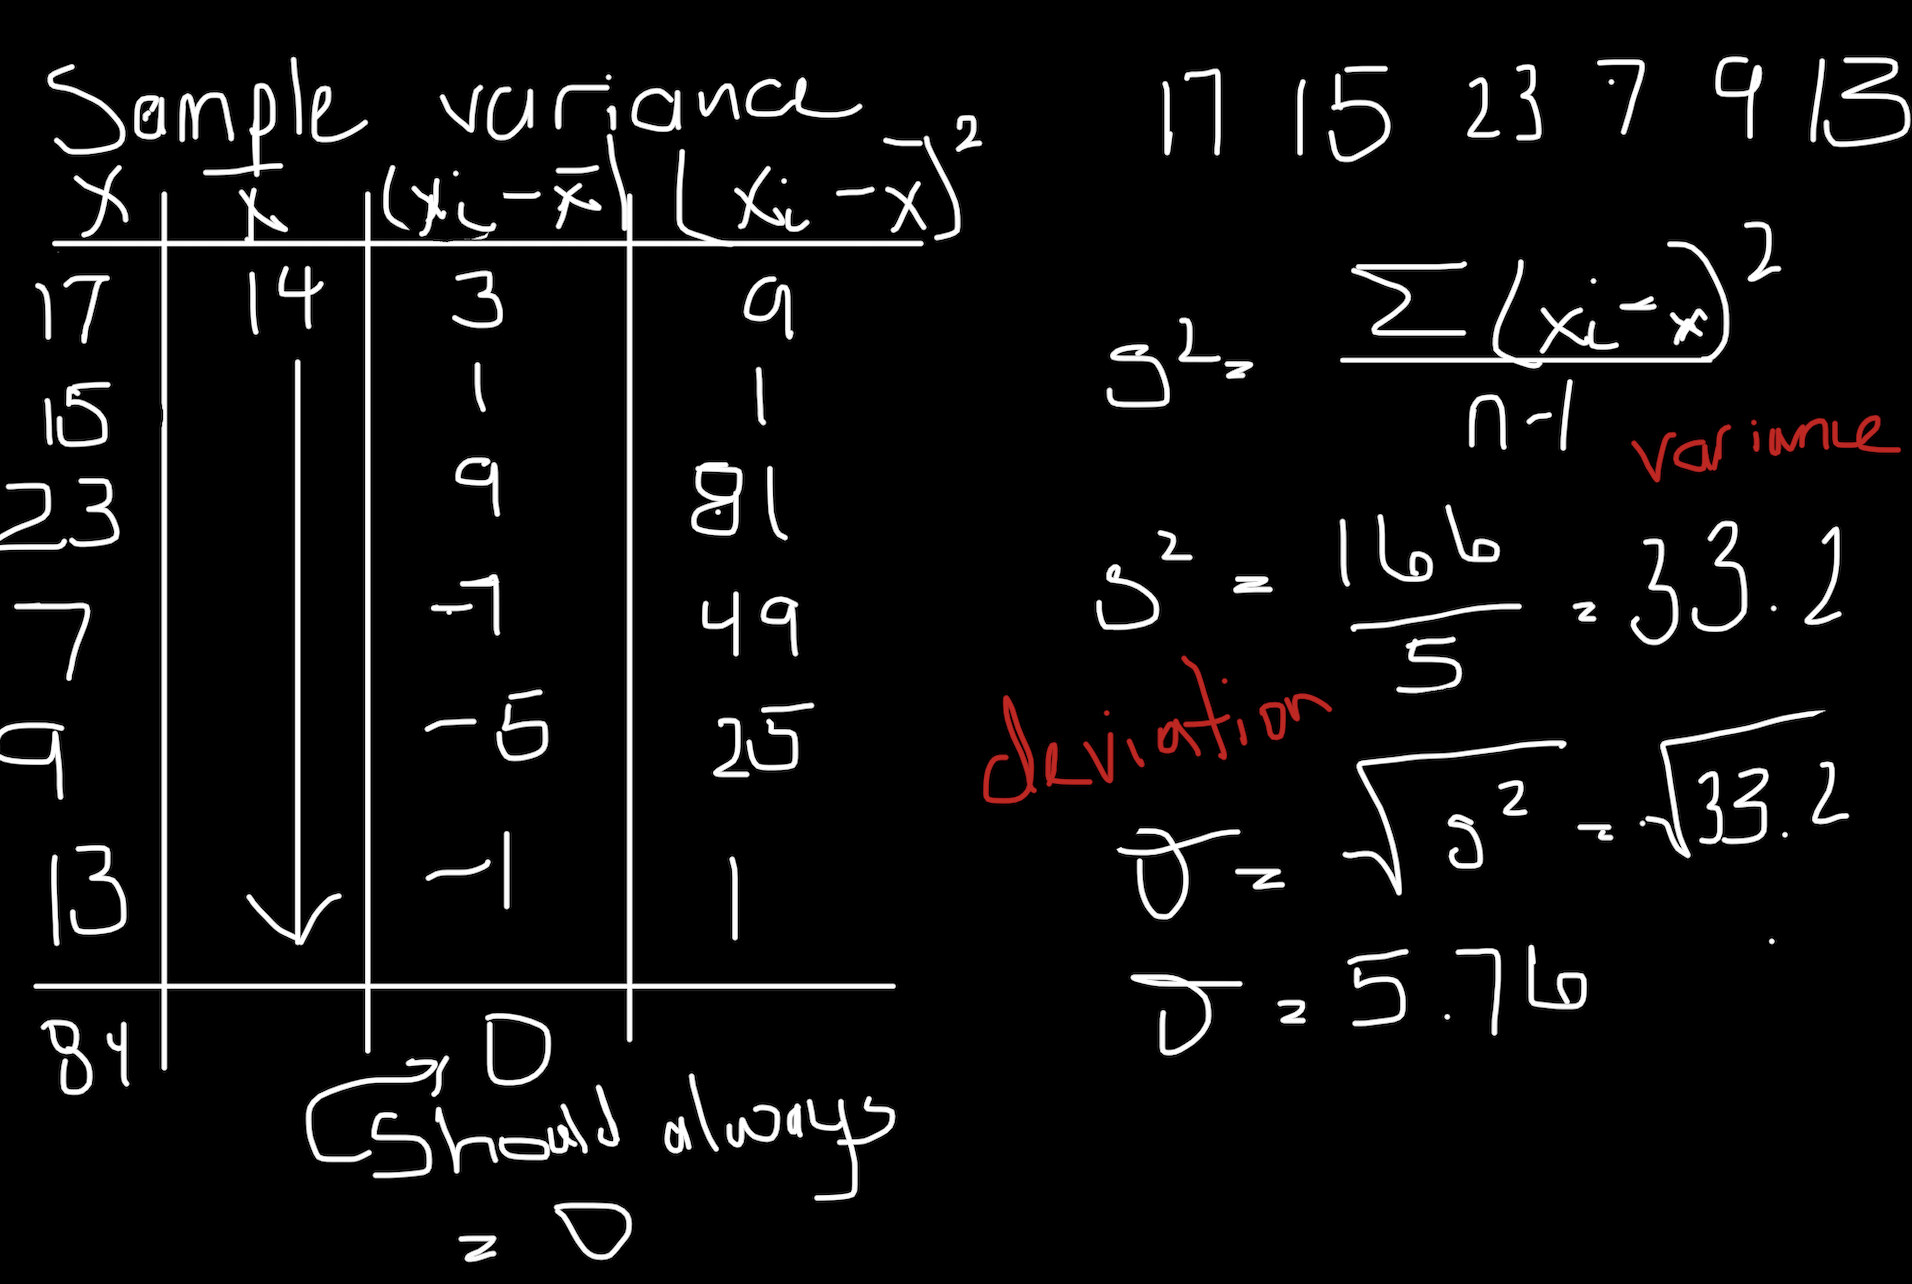 Sample variance
x x̄ (xi - x̄) (xi - x̄)²
17 14 3 9
15 1 1
23 9 81
7 -7 49
9 -5 25
13 -1 1
84 0
Should always
= 0
17 15 23 7 9 13
s² = Σ(xi - x)² / n-1
variance
s² = 166/5 = 33.2
deviation
σ = √s² = √33.2
σ = 5.76